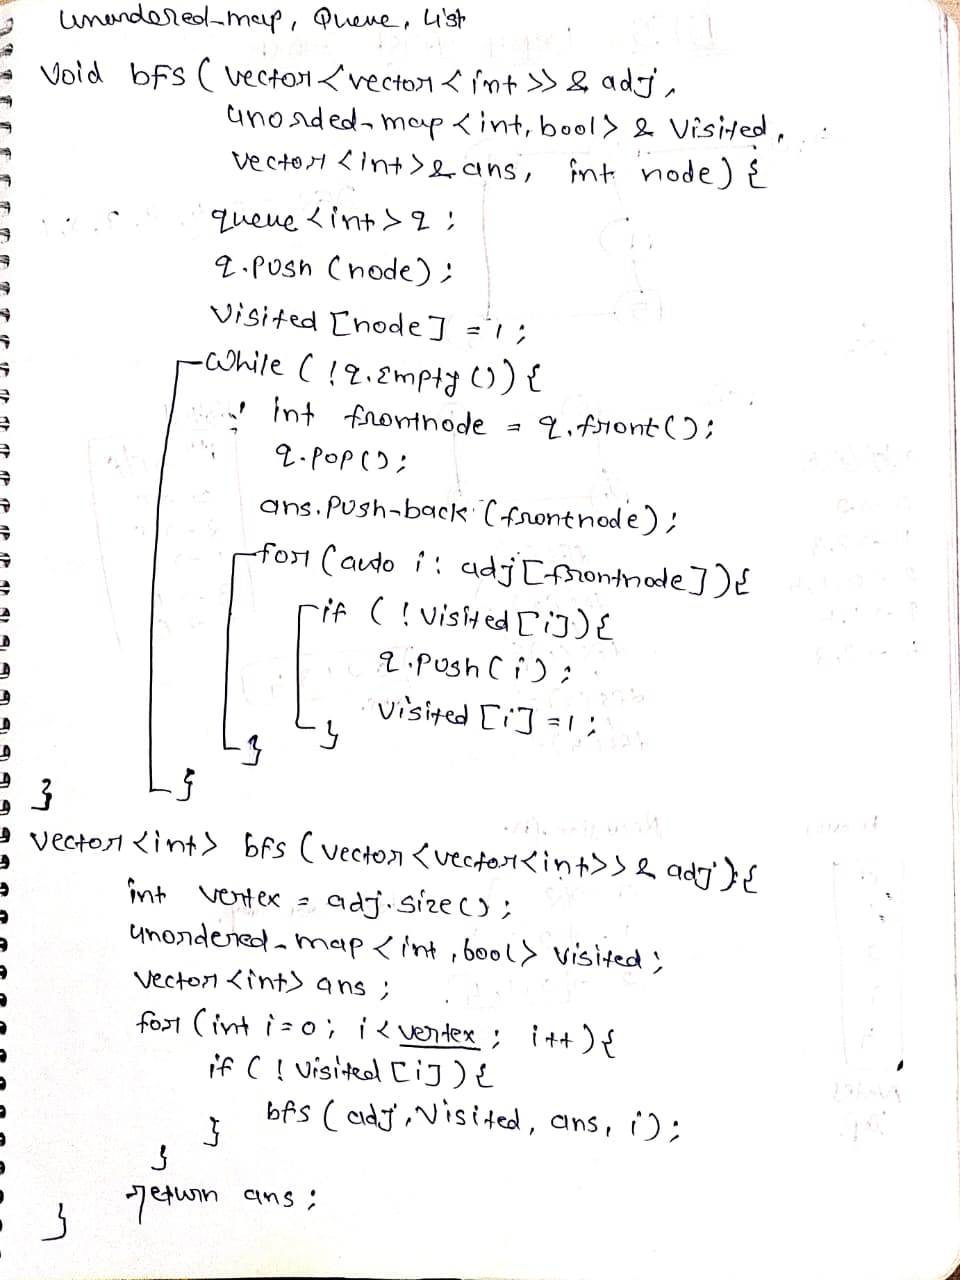 unordered_map, Queue, List
Void bfs ( vector<vector<int>> & adj,
unorded_map <int, bool> & Visited,
vector <int>& ans, int node) {
queue <int> q ;
q.push (node) ;
Visited [node] = 1 ;
While ( !q.Empty ()) {
int frontnode = q.front() ;
q.pop() ;
ans.push_back (frontnode) ;
for (auto i : adj [frontnode] ) {
if ( ! visited [i]) {
q.push( i ) ;
visited [i] = 1 ;
}
}
}
}
vector <int> bfs ( vector <vector<int>> & adj ) {
int vertex = adj.size() ;
unordered_map <int, bool> visited ;
vector <int> ans ;
for (int i=0 ; i < vertex ; i++ ) {
if ( ! visited [i] ) {
bfs ( adj, Visited, ans, i ) ;
}
}
return ans ;
}